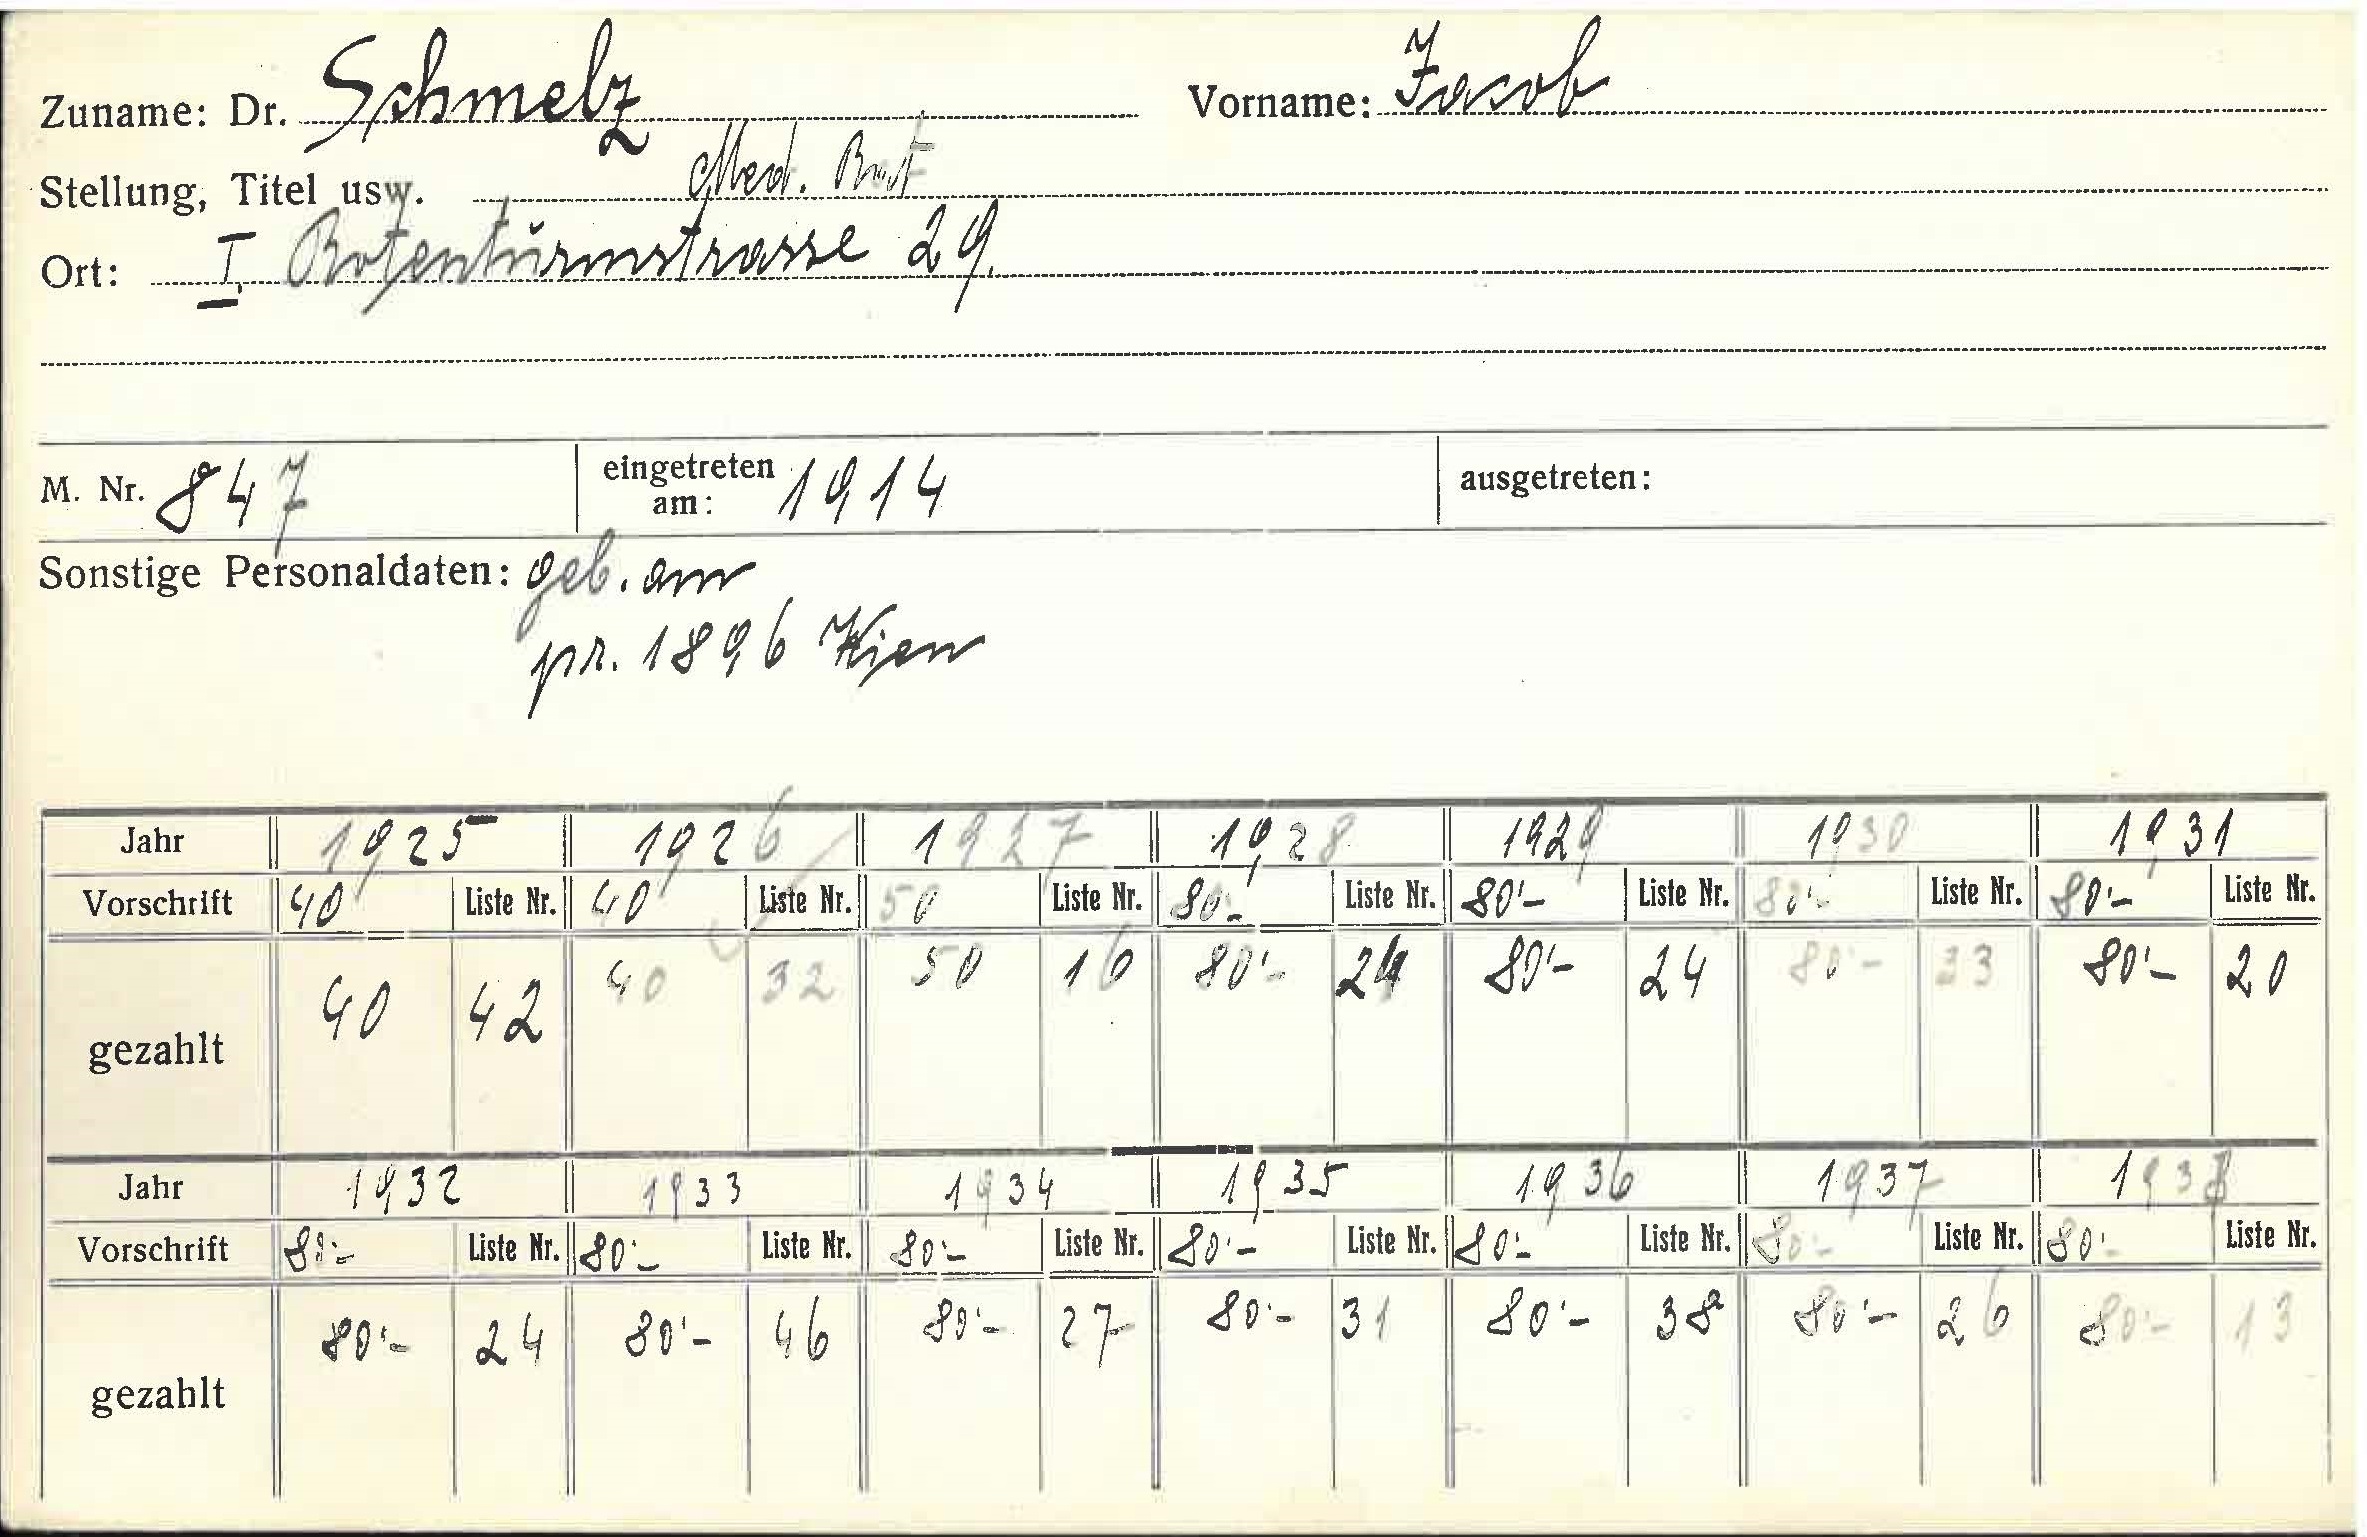 Zuname: Dr. Schmelz Vorname: Jacob
Stellung, Titel usw. Med. Rat
Ort: I. Rotenturmstrasse 29.
M. Nr. 847 eingetreten am: 1914 ausgetreten:
Sonstige Personaldaten: geb. am
pr. 1896 Wien
Jahr 1925 1926 1927 1928 1929 1930 1931
Vorschrift 40 Liste Nr. 40 Liste Nr. 50 Liste Nr. 80'- Liste Nr. 80'- Liste Nr. 80'- Liste Nr. 80'- Liste Nr.
gezahlt 40 42 40 32 50 16 80'- 24 80'- 24 80'- 33 80'- 20
Jahr 1932 1933 1934 1935 1936 1937 1938
Vorschrift 80'- Liste Nr. 80'- Liste Nr. 80'- Liste Nr. 80'- Liste Nr. 80'- Liste Nr. 80'- Liste Nr. 80'- Liste Nr.
gezahlt 80'- 24 80'- 46 80'- 27 80'- 31 80'- 38 80'- 26 80'- 13